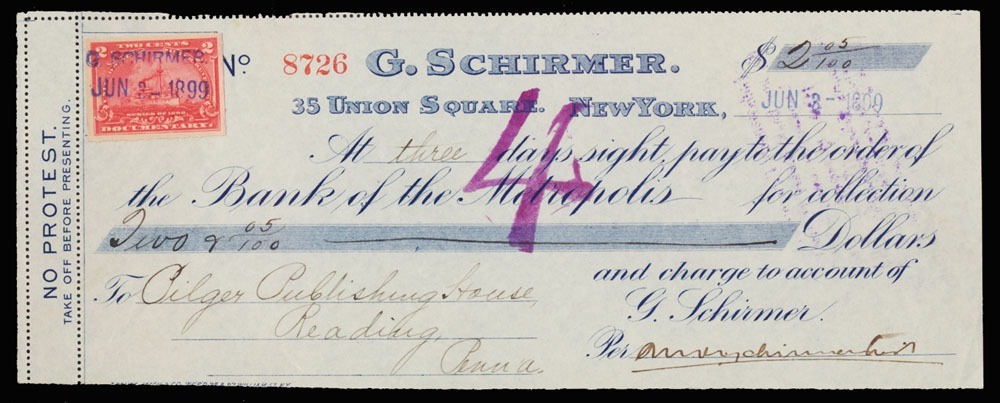 NO PROTEST.
TAKE OFF BEFORE PRESENTING.
TWO CENTS
2 2
G SCHIRMER
JUN 3 - 1899
SERIES OF 1898
DOCUMENTARY
No 8726 G. SCHIRMER. $ 2 05/100
35 UNION SQUARE. NEW YORK, JUN 3 - 1899
4
At three days sight, pay to the order of
the Bank of the Metropolis for collection
Two & 05/100 Dollars
To Pilger Publishing House and charge to account of
Reading, G. Schirmer.
Penna. Per